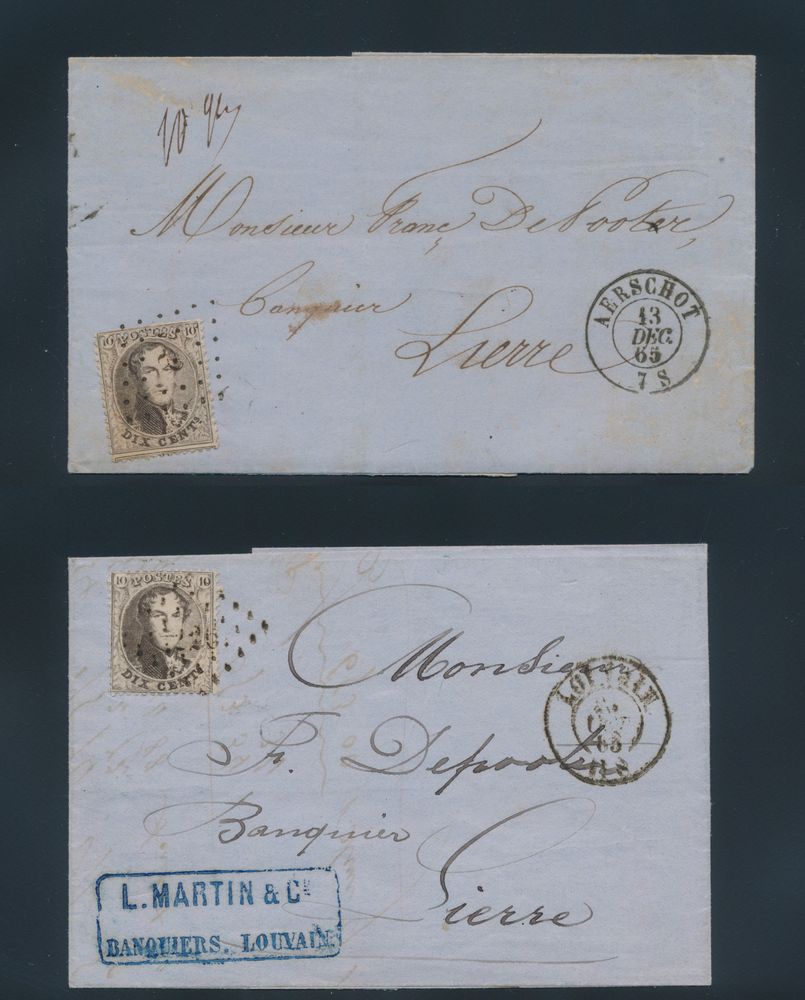 10
Monsieur Franç DeVooter,
Banquier
Lierre
AERSCHOT
13
DEC.
65
7 S
10 POSTES 10
DIX CENTS
10 POSTES 10
DIX CENTS
Monsieur
Fr. Depooter
Banquier
Lierre
LOUVAIN
L. MARTIN & CIE
BANQUIERS. LOUVAIN.